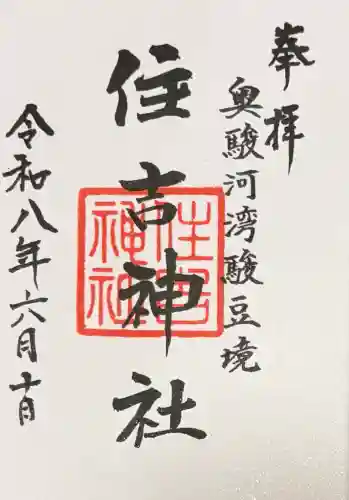 奉拝
奥駿河湾駿豆境
住吉神社
住吉神社
令和八年六月十日